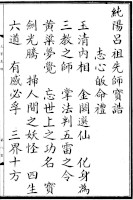 純陽呂祖先師寶誥
志心皈命禮
玉清內相 金闕選仙 化身為
三教之師 掌法判五雷之令
黃粱夢覺 忘世上之功名 寶
劍光騰 掃人間之妖怪 四生
六道 有感必孚 三界十方